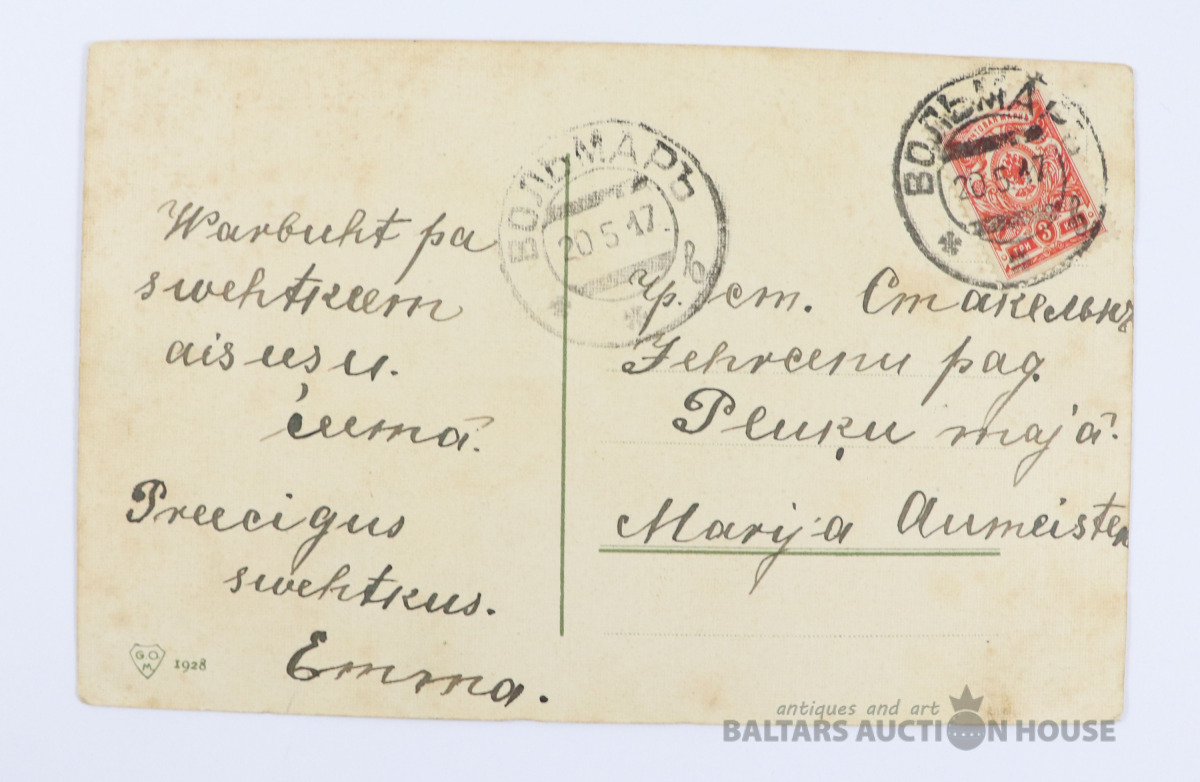 ВОЛЬМАРЪ
20 5 17
в
ВОЛЬМАРЪ
20 5 17
в
ТРИ 3 КОП
Warbuht pa
swehtkeem
aisuşu.
ceemā.
Preecigus
swehtkus.
Emma.
ст. Стакельнъ
Jehrcenu pag.
Pluķu majā.
Marija Aumeister
G.O.M
1928
antiques and art
BALTARS AUCTION HOUSE